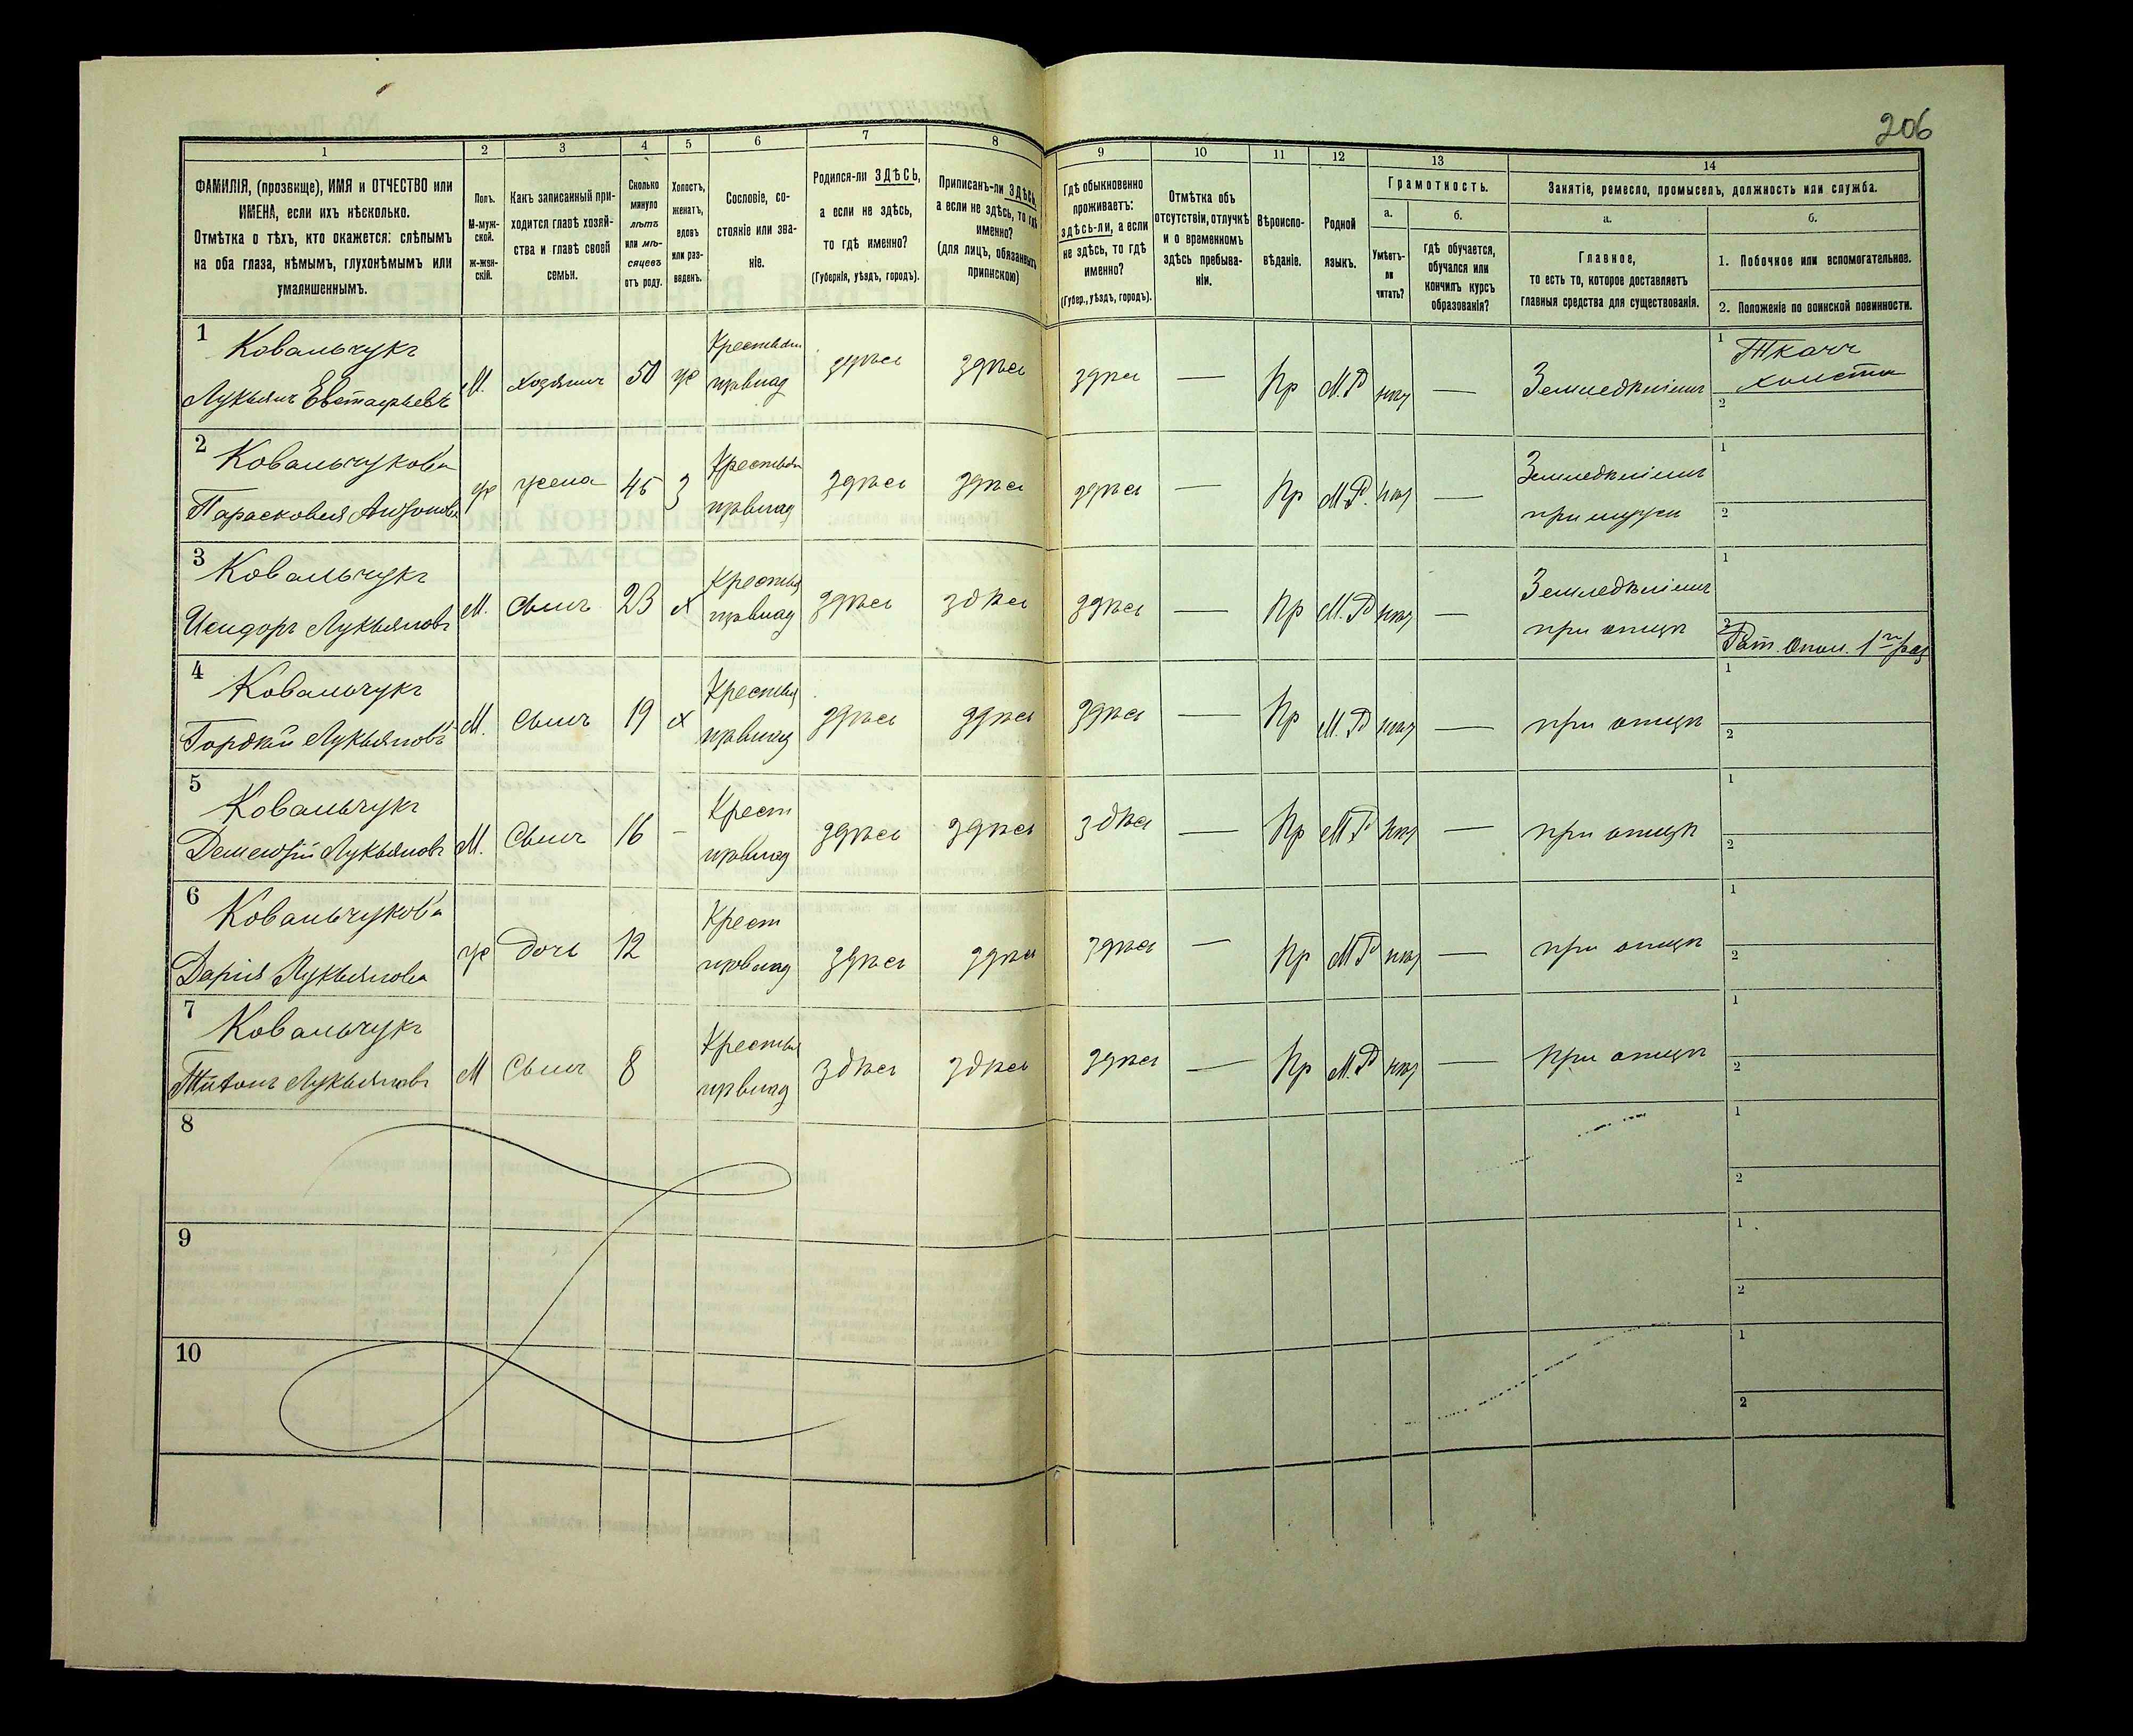 206
1 2 3 4 5 6 7 8 9 10 11 12 13 14
ФАМИЛІЯ, (прозвище), ИМЯ и ОТЧЕСТВО или
ИМЕНА, если ихъ нѣсколько.
Отмѣтка о тѣхъ, кто окажется: слѣпымъ
на оба глаза, нѣмымъ, глухонѣмымъ или
умалишеннымъ.
Полъ.
М-муж-
ской.
ж-жен-
скій.
Какъ записанный при-
ходится главѣ хозяй-
ства и главѣ своей
семьи.
Сколько
минуло
лѣтъ
или мѣ-
сяцевъ
отъ роду.
Холостъ,
женатъ,
вдовъ
или раз-
веденъ.
Сословіе, со-
стояніе или зва-
ніе.
Родился-ли ЗДѢСЬ,
а если не здѣсь,
то гдѣ именно?
(Губернія, уѣздъ, городъ).
Приписанъ-ли ЗДѢСЬ,
а если не здѣсь, то гдѣ
именно?
(для лицъ, обязанныхъ
припискою)
Гдѣ обыкновенно
проживаетъ:
здѣсь-ли, а если
не здѣсь, то гдѣ
именно?
(Губер., уѣздъ, городъ).
Отмѣтка объ
отсутствіи, отлучкѣ
и о временномъ
здѣсь пребыва-
ніи.
Вѣроиспо-
вѣданіе.
Родной
языкъ.
Грамотность.
а.
Умѣетъ-
ли
читать?
б.
гдѣ обучается,
обучался или
кончилъ курсъ
образованія?
Занятіе, ремесло, промыселъ, должность или служба.
а.
Главное,
то есть то, которое доставляетъ
главныя средства для существованія.
б.
1. Побочное или вспомогательное.
2. Положеніе по воинской повинности.
1 Ковальчукъ
Лукьянъ Евстафьевъ
М. хозяинъ 50 ж
Крестьян
здѣсь здѣсь здѣсь — Пр М.Р — Земледѣліемъ
1 Ткачъ
холста
2
2 Ковальчукова
Парасковея Антонова
ж жена 45 З
Крестьян
здѣсь здѣсь здѣсь — Пр М.Р. —
Земледѣліемъ
при мужѣ
1
2
3 Ковальчукъ
Исидоръ Лукьяновъ
М. Сынъ 23 х
Крестья
здѣсь здѣсь здѣсь — Пр М.Р —
Земледѣліемъ
при отцѣ
1
2 Рат. Опол. 1го раз
4 Ковальчукъ
Гордѣй Лукьяновъ
М. Сынъ 19 х
Крестья
здѣсь здѣсь здѣсь — Пр М.Р — при отцѣ
1
2
5 Ковальчукъ
Лукьяновъ
М. Сынъ 16 -
Крест
здѣсь здѣсь здѣсь — Пр М.Р — при отцѣ
1
2
6 Ковальчукова
Дарія Лукьянова
ж Дочь 12
Крест
здѣсь здѣсь здѣсь — Пр М.Р — при отцѣ
1
2
7 Ковальчукъ
Лукьяновъ
М Сынъ 8
Крестья
здѣсь здѣсь здѣсь — Пр М.Р — При отцѣ
1
2
8
1
2
9
1
2
10
1
2